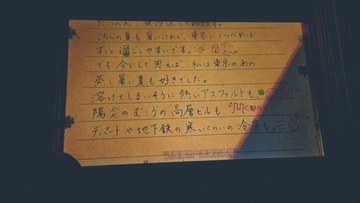 こちらの夏も暑いけれど、東京にくらべれば
ずっと過ごしやすいです。
でも今にして思えば、私は東京のあの
蒸し暑い夏も好きでした。
溶けてしまいそうに熱いアスファルトも
陽炎のむこうの高層ビルも
デパートや地下鉄の寒いくらいの冷房も